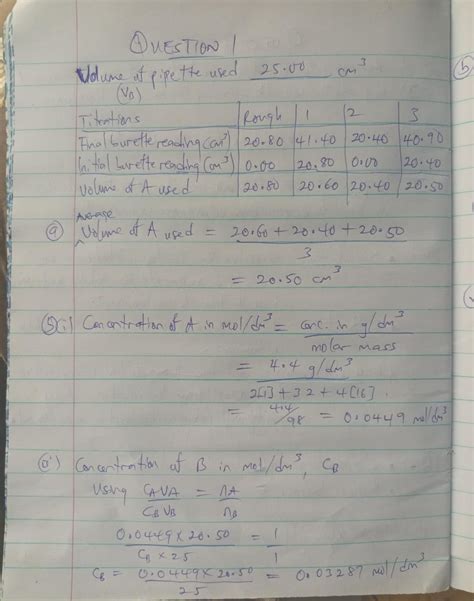 ① QUESTION 1
Volume of pipette used 25.00 cm³
(VB)
Titrations | Rough | 1 | 2 | 3
Final burette reading (cm³) | 20.80 | 41.40 | 20.40 | 40.90
Initial burette reading (cm³) | 0.00 | 20.80 | 0.00 | 20.40
Volume of A used | 20.80 | 20.60 | 20.40 | 20.50
Average
ⓐ Volume of A used = 20.60 + 20.40 + 20.50
3
= 20.50 cm³
ⓑ i) Concentration of A in mol/dm³ = conc. in g/dm³
molar mass
= 4.4 g/dm³
2[1] + 32 + 4[16]
= 4.4/98 = 0.0449 mol/dm³
ii) Concentration of B in mol/dm³, CB
Using CAVA = nA
CBVB nB
0.0449 × 20.50 = 1
CB × 25 1
CB = 0.0449 × 20.50 = 0.03287 mol/dm³
25